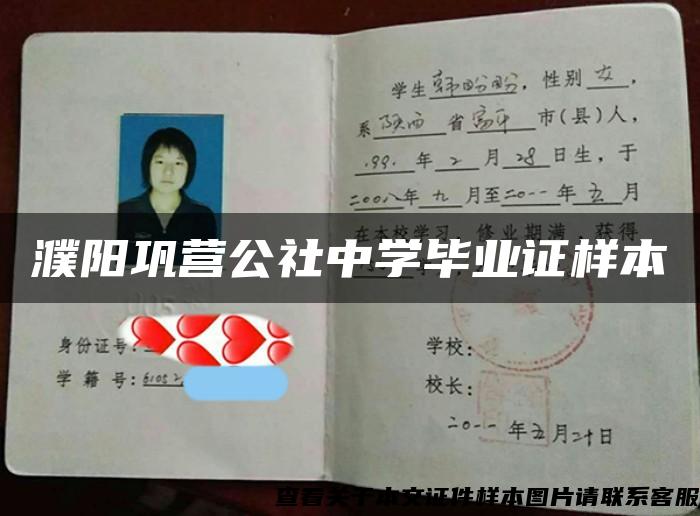 学生韩盼盼，性别女，
系陕西省富平市(县)人，
199.年2月28日生，于
二00八年九月至二0一一年五月
在本校学习，修业期满，获得
濮阳巩营公社中学毕业证样本
身份证号：
学 籍 号：61052
学校：
校长：
二0一一年五月二十日
查看关于本文证件样本图片请联系客服